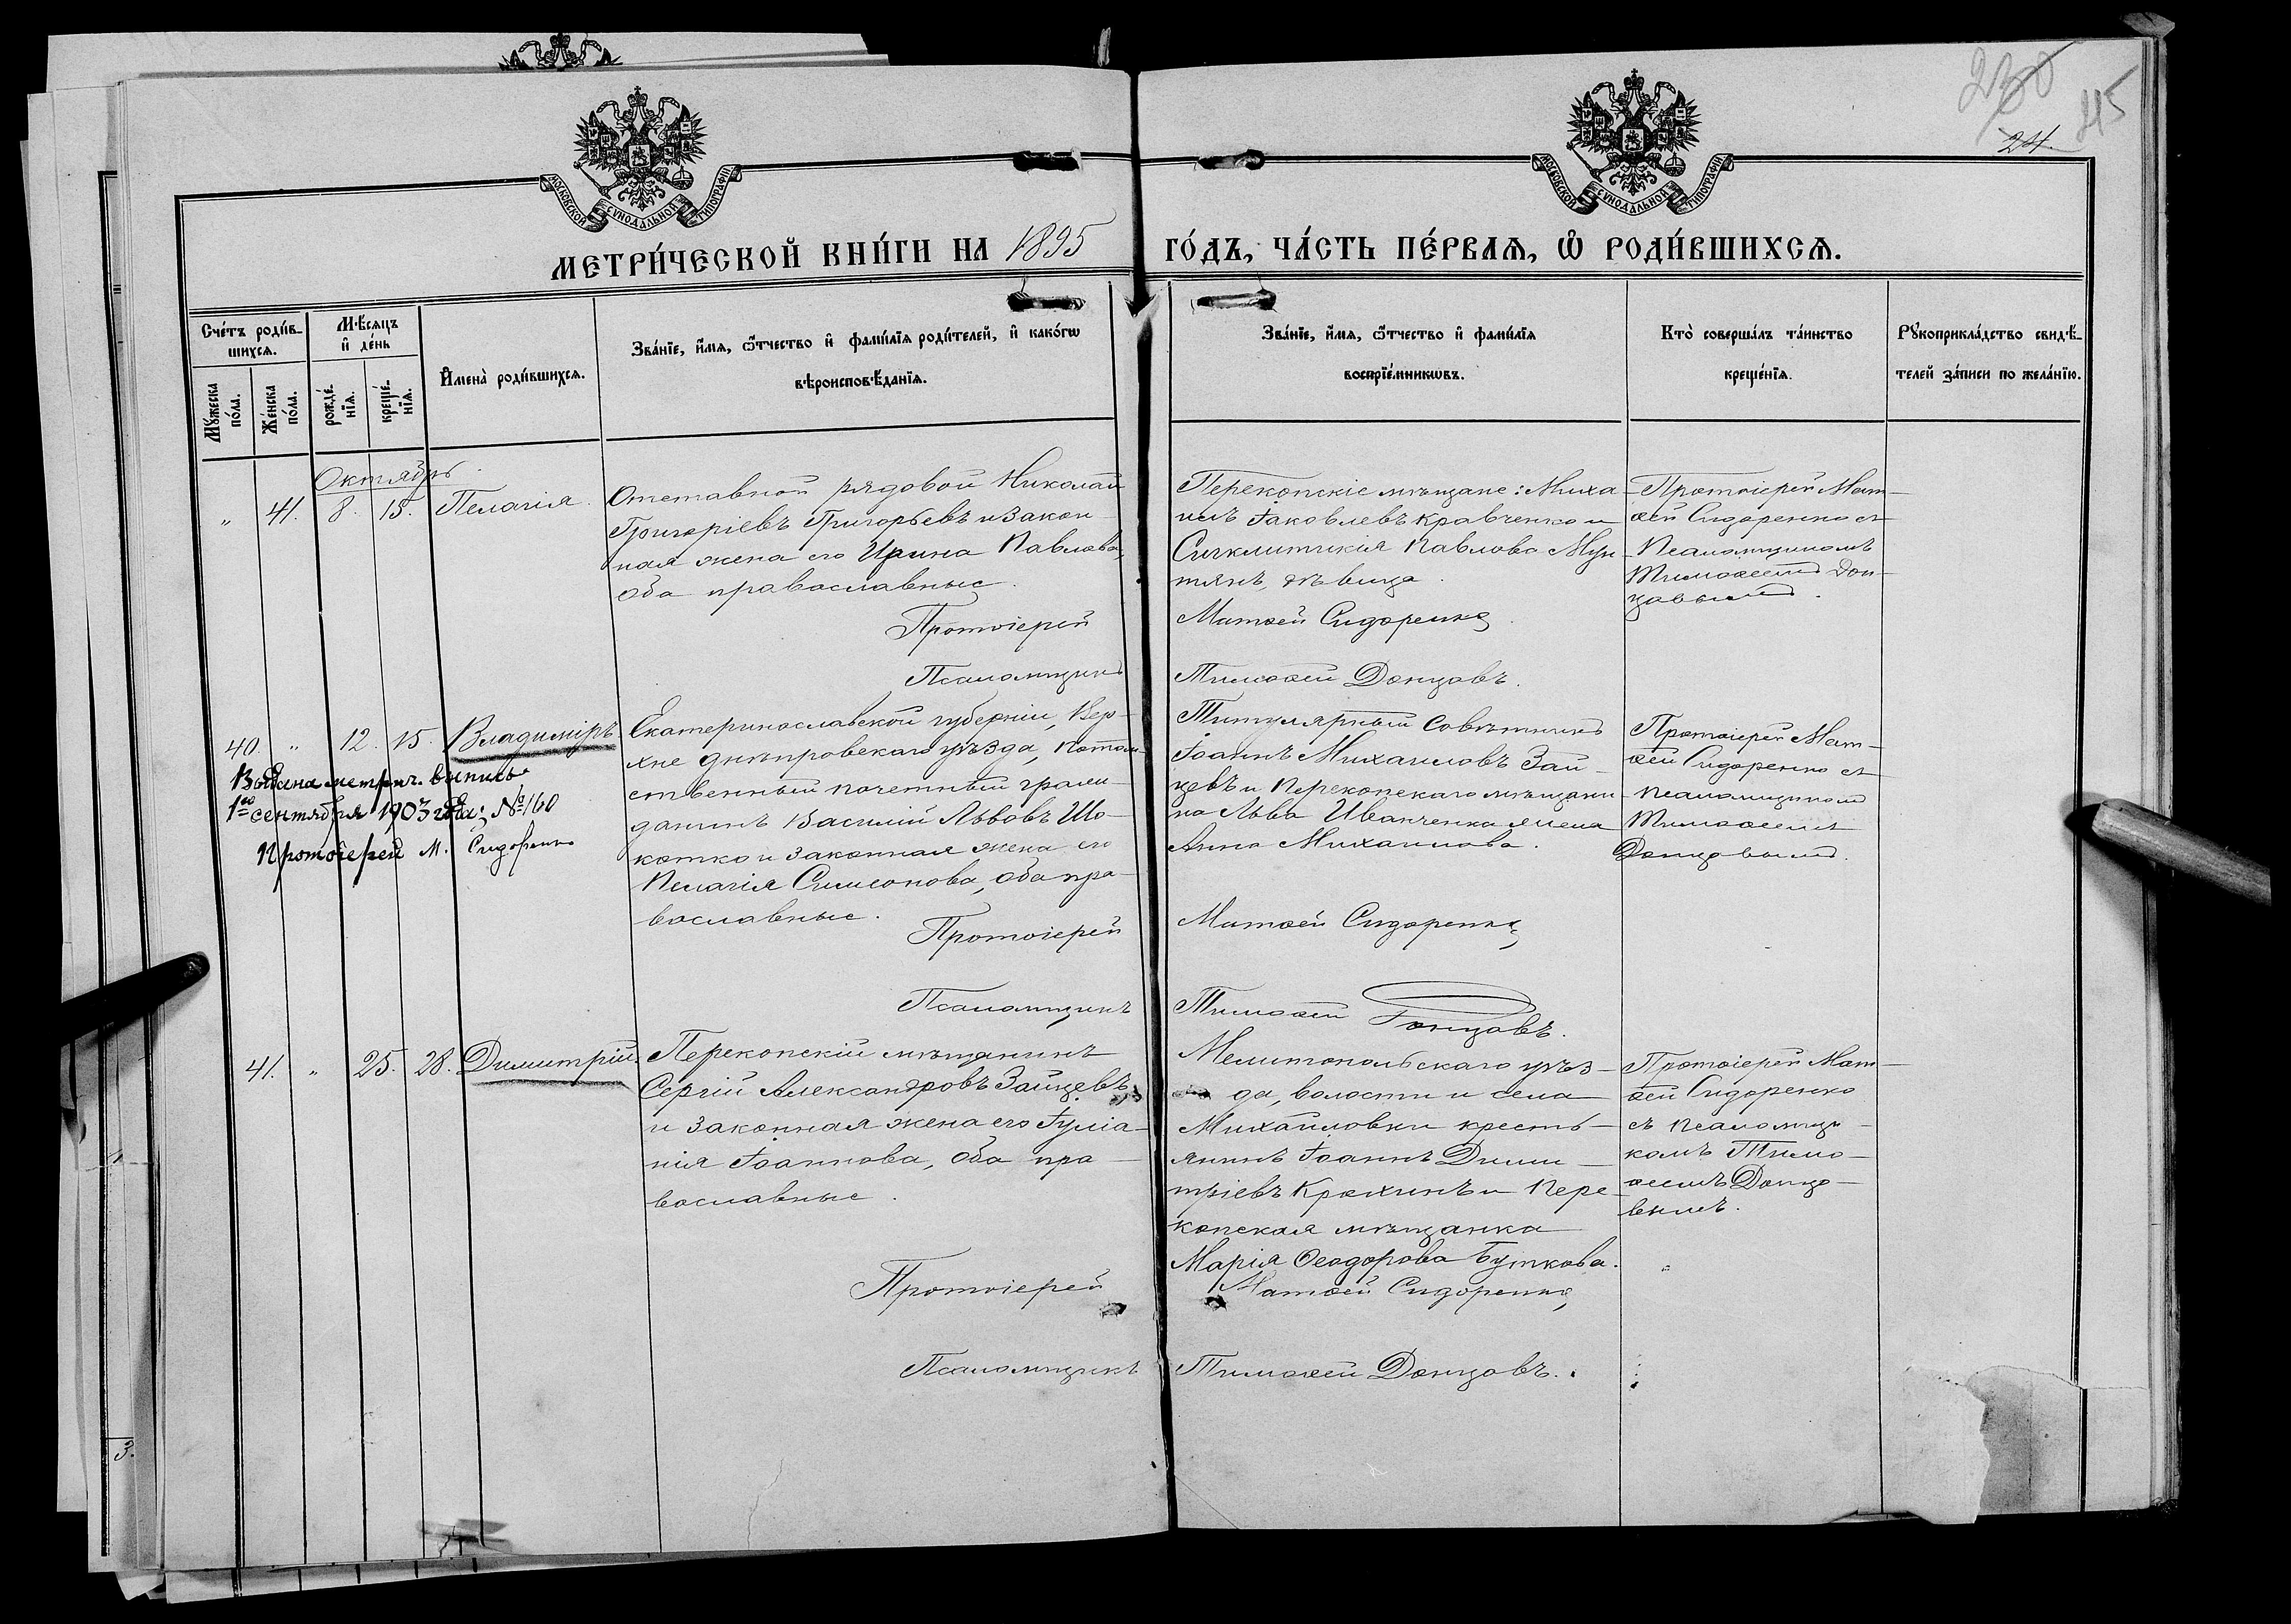 230
215
24.
МОСКОВСКОЙ СѴНОДАЛЬНОЙ ТИПОГРАФІИ
МОСКОВСКОЙ СѴНОДАЛЬНОЙ ТИПОГРАФІИ
МЕТРИ́ЧЕСКОЙ КНИ́ГИ НА 1895 ГО́ДЪ, ЧА́СТЬ ПЕ́РВАѦ, Ѽ РОДИ́ВШИХСѦ.
Сче́тъ роди́в-
шихсѧ.
Мꙋжеска по́ла.
Же́нска по́ла.
М҄ѣсѧцъ
и҆ де́нь
рожде́-
нїѧ.
креще́-
нїѧ.
И҆мена̀ роди́вшихсѧ.
Зва́нїе, и҆́мѧ, ѻ҆́тчество и҆ фами́лїѧ роди́телей, и҆ како́гѡ
вѣроисповѣ́данїѧ.
Зва́нїе, и҆́мѧ, ѻ҆́тчество и҆ фами́лїѧ
воспрїе́мникѡвъ.
Кто̀ соверша́лъ та́инство
креще́нїѧ.
Рꙋкоприкла́дство свидѣ́-
телей за́писи по жела́нїю.
Октябрь.
„ 41. 8. 15. Пелагія.
Отставной рядовой Николай
Григоріевъ Григорьевъ и закон-
ная жена его Ирина Павлова,
оба православные.
Протоіерей
Псаломщикъ
Перекопскіе мѣщане: Миха-
илъ Іаковлевъ Кравченко и
Сигклитикія Павлова Мун-
тянъ, дѣвица.
Матѳей Сидоренко
Тимоѳей Донцовъ.
Протоіерей Мат-
ѳей Сидоренко съ
Псаломщикомъ
Тимоѳеемъ Дон-
цовымъ.
40. „ 12. 15. Владиміръ
Выдана метрич. выпись
1го сентября 1903 года; № 160
Протоіерей М. Сидоренко
Екатеринославской губерніи, Вер-
хнеднѣпровскаго уѣзда, потом-
ственный почетный граж-
данинъ Василій Львовъ Шо-
котко и законная жена его
Пелагія Симеонова, оба пра-
вославные.
Протоіерей
Псаломщикъ
Титулярный Совѣтникъ
Іоаннъ Михаиловъ Зай-
цевъ и Перекопскаго мѣщани-
на Льва Иванченка жена
Анна Михаилова.
Матѳей Сидоренко
Тимоѳей Донцовъ.
Протоіерей Мат-
ѳей Сидоренко съ
псаломщикомъ
Тимоѳеемъ
Донцовымъ.
41. „ 25. 28. Димитрій.
Перекопскій мѣщанинъ
Сергій Александровъ Зайцевъ
и законная жена его Іуліа-
нія Іоаннова, оба пра-
вославные.
Протоіерей
Псаломщикъ
Мелитопольскаго уѣз-
да, волости и села
Михайловки кресть-
янинъ Іоаннъ Дими-
тріевъ Крохинъ и Пере-
копская мѣщанка
Марія Ѳеодорова Буткова.
Матѳей Сидоренко
Тимоѳей Донцовъ.
Протоіерей Мат-
ѳей Сидоренко
съ псаломщи-
комъ Тимо-
ѳеемъ Донцо-
вымъ.
3.